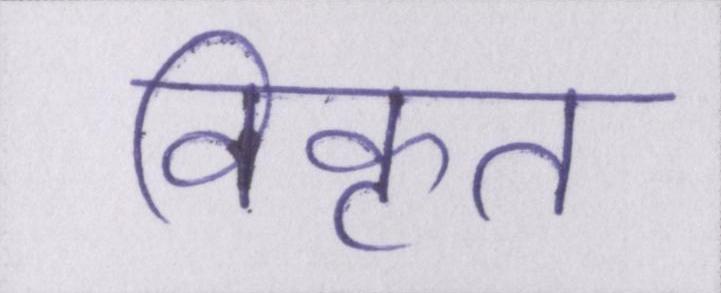 विकृत